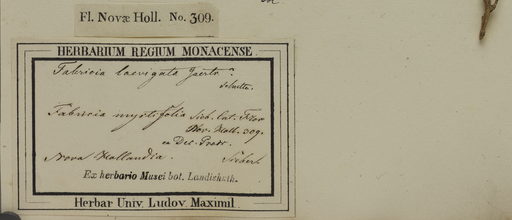 Fl. Novæ Holl. No. 309.
HERBARIUM REGIUM MONACENSE.
Fabricia laevigata Gaertn.
Fabricia myrtifolia Sieb. Flor
Nov. Holl. 309.
Nova Hollandia. Sieber
Ex herbario Musei bot. Landishuth.
Herbar Univ. Ludov. Maximil.